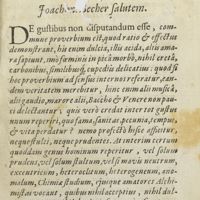 Joach[...] Becher salutem.
DE gustibus non disputandum esse, com-
mune proverbium est, quod ratio & effectus
demonstrant, his enim dulcia, illis acida, aliis ama-
ra sapiunt, imò fœminis in picâ morbo, nihil cretâ,
carbonibus, similibusq́; cupediis delicatius: quod si
hoc proverbium ad sensus internos referatur, ean-
dem veritatem merebitur, hinc enim alii musicâ,
alii gaudio, marore alii, Baccho & Venere non pau-
ci delectantur; quis verò credat inter tot gustus
nunm reperiri, quo fama, sanitas, pecunia, tempus,
quin & vita perdatur? nemo profectò hisce afficitur,
nequestulti, neque prudentes. At interim certum
quoddam genus hominum reperitur, vel solum
prudens, vel solum stultum, vel si mavis neutrum,
excentricum, heteroclitum, heterogeneum, ano-
malum, Chimiæ studium, ejusque amatores Alchi-
mistas vocant, quibus nihil acceptius, nihil dul-